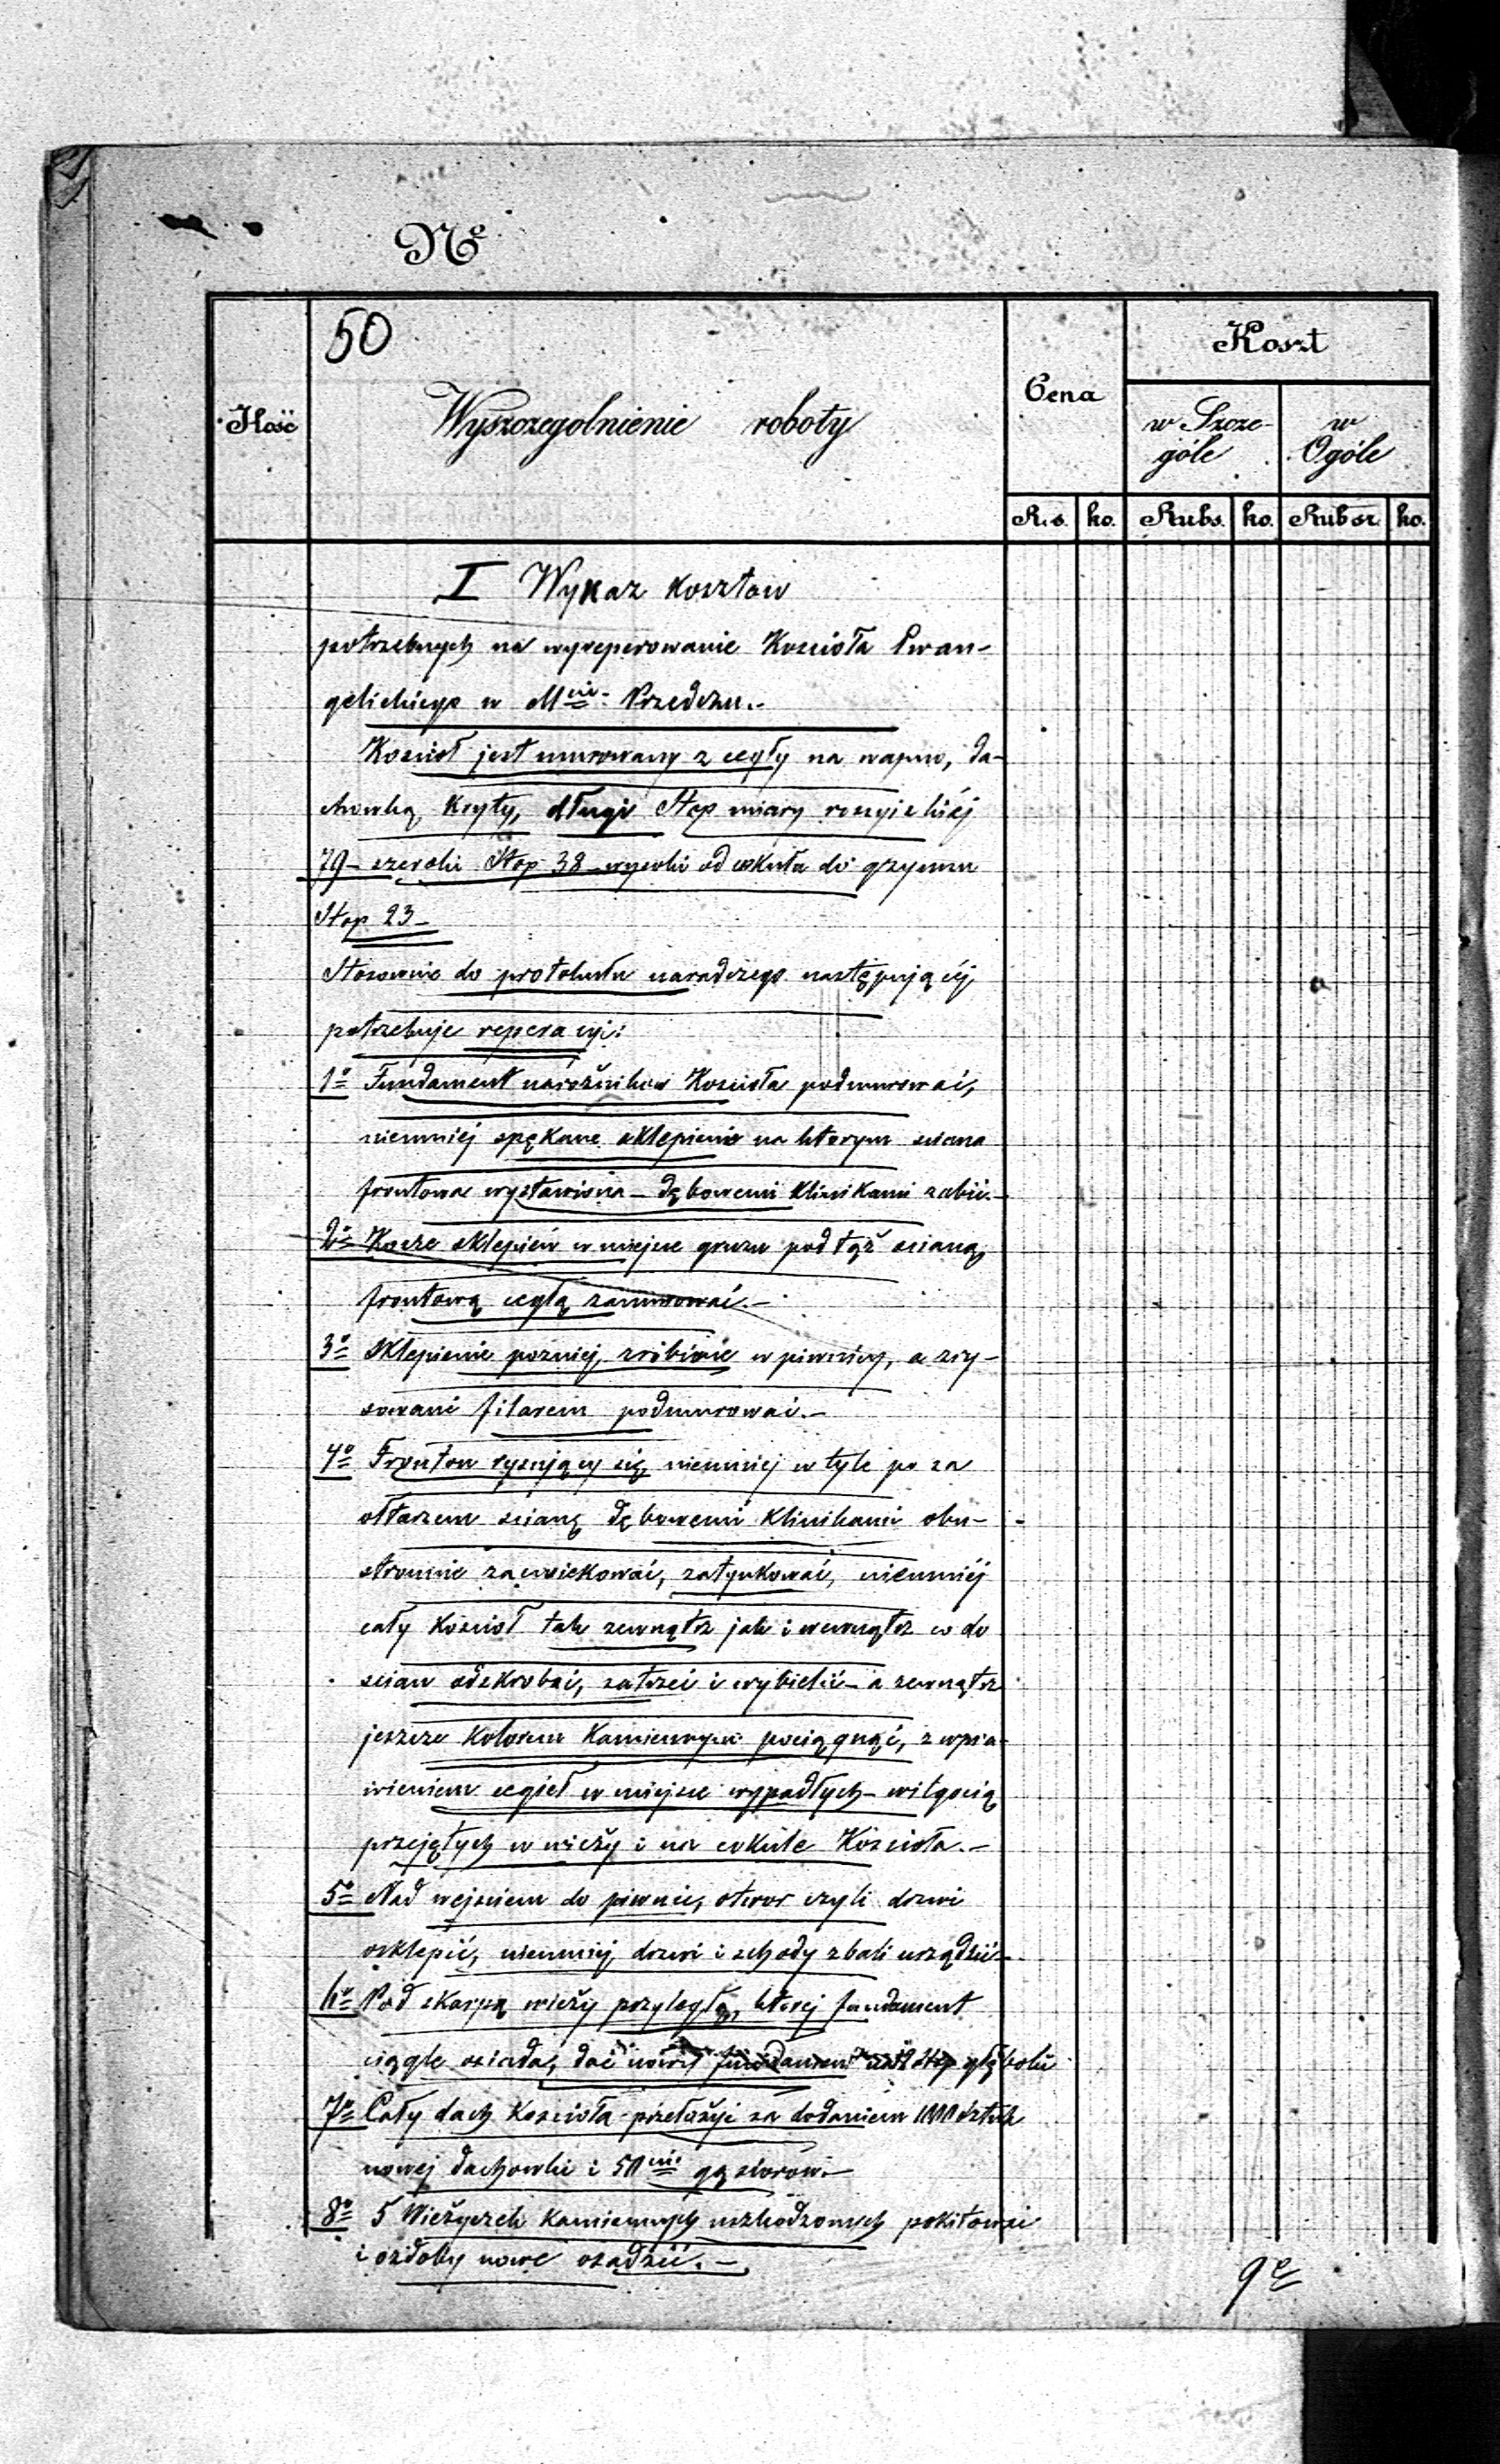 No
50
Ilość
Wyszczegolnienie roboty
Cena
Koszt
w Szcze-
góle
w
Ogóle
R.s. ko. Rubs. ko. Rub sr. ko.
I Wykaz kosztow
potrzebnych na wyreperowanie Kościoła Ewan-
gelickiego w Mcie Przedczu.-
Kościoł jest murowany z cegły na wapno, da-
chowką kryty, długi Stop miary rossyiskiéj
79 - szeroki Stop 38 - wysoki od cokuła do gzymsu
Stop 23 -
Stosownie do protokułu naradczego następującéj
potrzebuje reperacyi:
1o Fundament narożnikow Kościoła podmurować,
niemniéj spękane sklepienie na ktorym sciana
frontowa wystawiona - dębowemi klinikami zabić.-
2o Kosze sklepień w miejsce gruzu pod tąż scianą
frontową cegłą zamurować.-
3o Sklepienie pozniej zrobione w piwnicy, a zry-
sowane filarem podmurować.-
4o Fronton rysujący się niemniej w tyle po za
ołtarzem scianę dębowemi klinikami obu-
stronnie zacwiekować, zatynkować, niemniéj
cały Kościoł tak zewnątrz jak i wewnątrz co do
scian odskrobać, zatrzeć i wybielić - a zewnątrz
jeszcze kolorem kamiennym pociągnąć, z wpra-
wieniem cegieł w miejsce wypadłych - wilgocią
przejętych w wieży i na cokule Kościoła.-
5o Nad wejsciem do piwnic, otwor czyli drzwi
osklepić, niemniej drzwi i schody z bali urządzić -
6o Pod skarpą wieży przyległą, ktorej fundament
ciągle osiada, dać nowy fundament na 2 stop głęboki
7o Cały dach Kościoła przełożyć za dodaniem 1000 sztuk
nowej dachowki i 50ciu gąsiorow.-
8o 5 Wieżyczek kamiennych uszkodzonych pokitować
i ozdoby nowe osadzić.-
9o